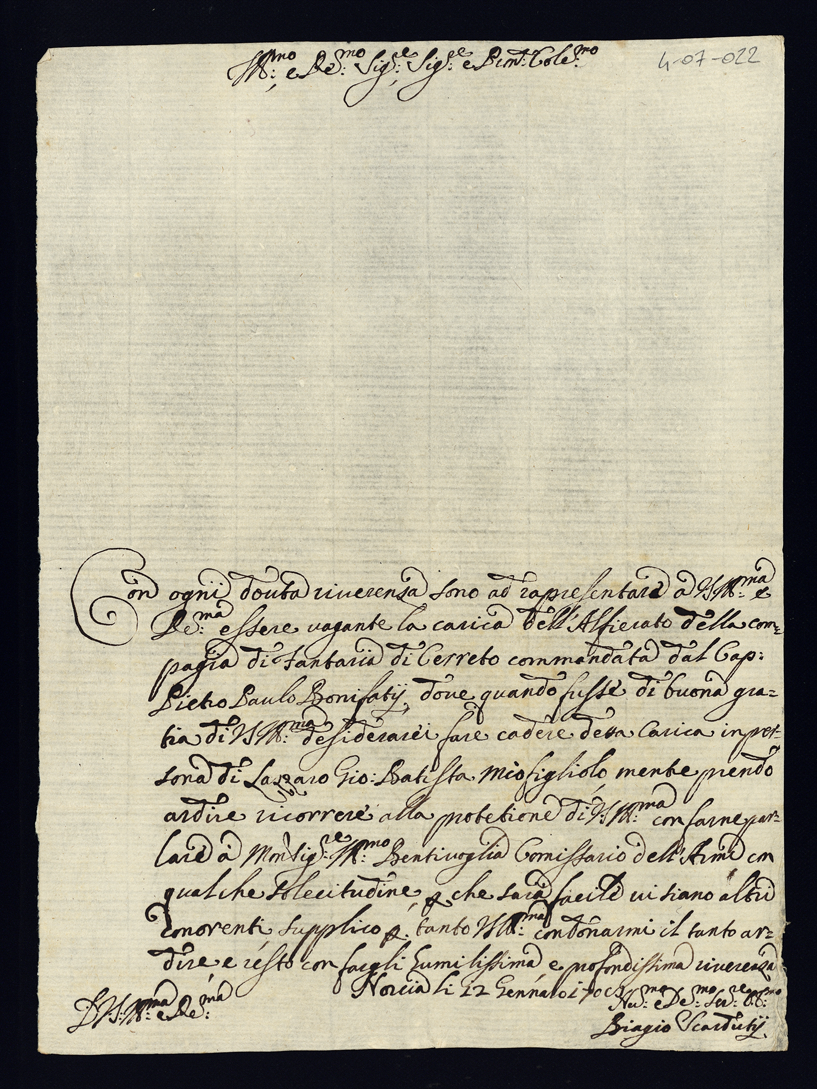 Ill:mo e Re:mo Sig:re Sig:re e Pron: Cole:mo
4-07-022
Con ogni douta riuerenza sono ad rapresentare à V.S. Ill:ma e
Re:ma essere vagante la carica dell'Alfierato della com=
pagia di fantaria di Cerreto commandata dal Cap:
Pietro Paulo Bonifatij, doue quando fusse di buona gra=
tia di V.S. Ill:ma desiderarei fare cadere detta Carica in per=
sona di Lazzaro Gio: Batista mio figliolo mentre prendo
ardire ricorrere alla protetione di V.S. Ill:ma con farne par=
lare à Monsig:re Ill:mo Bentivoglia Comissario dell'Armi con
qualche solecitudine, che sarà facile ui siano altri
concorenti supplico tanto V.S. Ill:ma condonarmi il tanto ar=
dire e resto con fargli humilissima e profondissima riuerenza
Norcia li 22 Gennaro
D V.S. Ill:ma e Re:ma
Biagio Scardutij